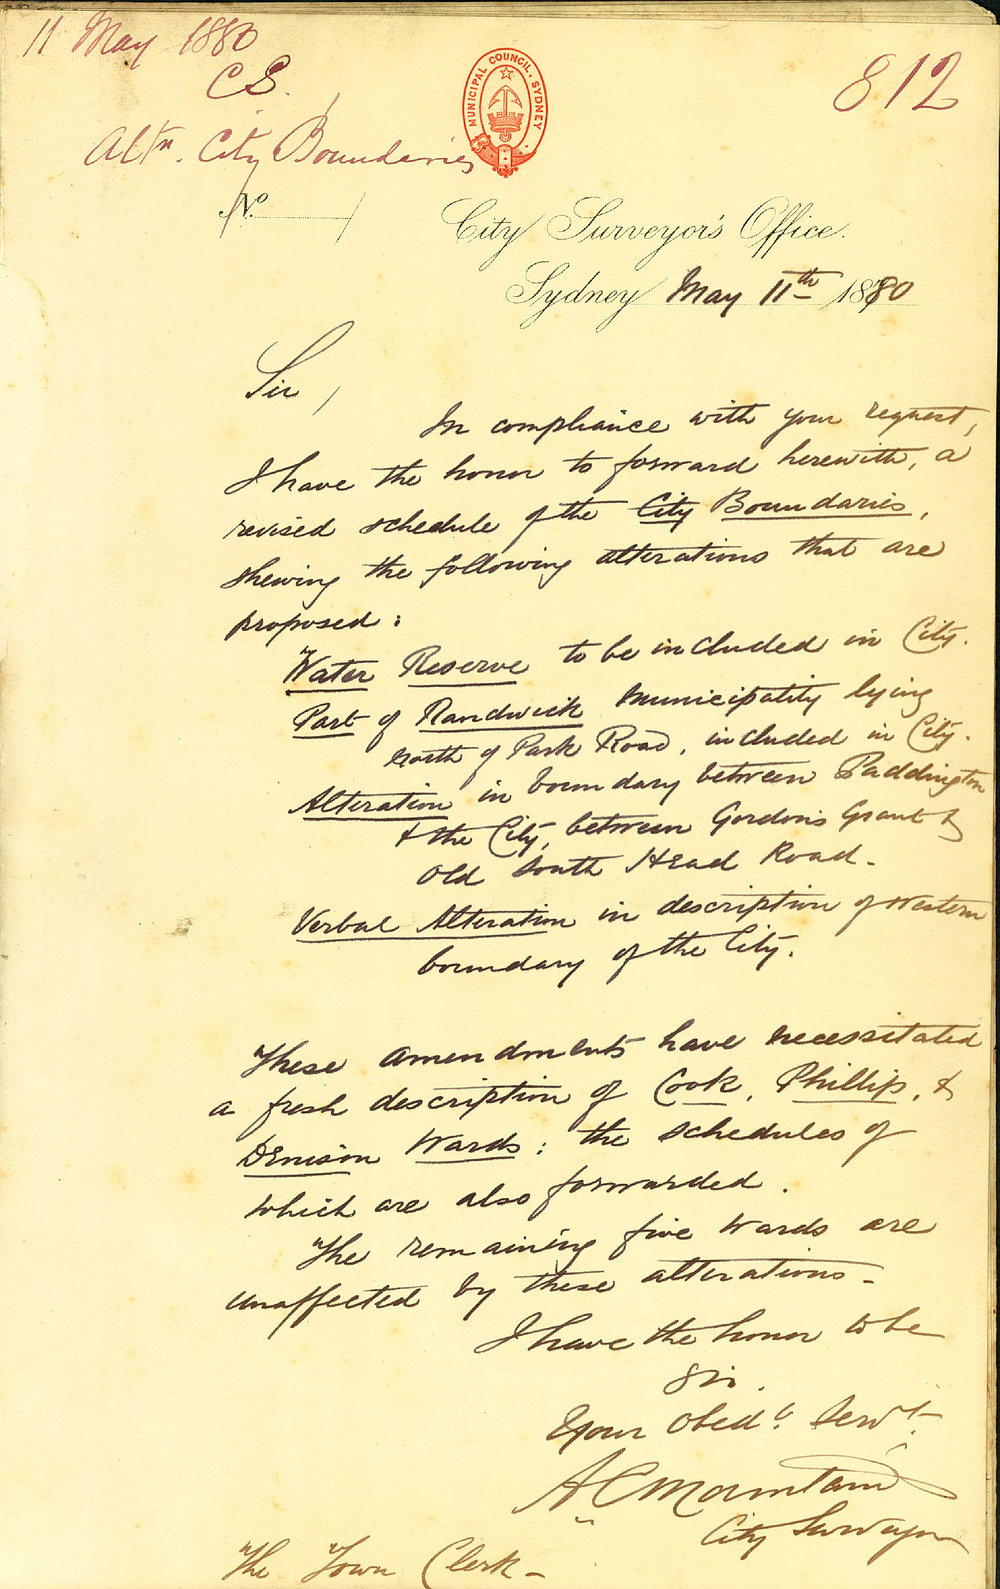 11 May 1880
C S.
Altn. City Boundaries
812
MUNICIPAL COUNCIL. SYDNEY
No.
City Surveyor's Office.
Sydney May 11th 1880
Sir,
In compliance with your request,
I have the honor to forward herewith, a
revised schedule of the City Boundaries,
shewing the following alterations that are
proposed:
Water Reserve to be included in City.
Part of Randwick Municipality lying
north of Park Road, included in City.
Alteration in boundary between Paddington
& the City, between Gordon's Grant &
Old South Head Road.
Verbal Alteration in description of Western
boundary of the City.
These amendments have necessitated
a fresh description of Cook, Phillip, &
Denison Wards: the schedules of
which are also forwarded.
The remaining five Wards are
unaffected by these alterations.
I have the honor to be
Sir.
Your Obedt. Servt.
A C Mountain
City Surveyor
The Town Clerk